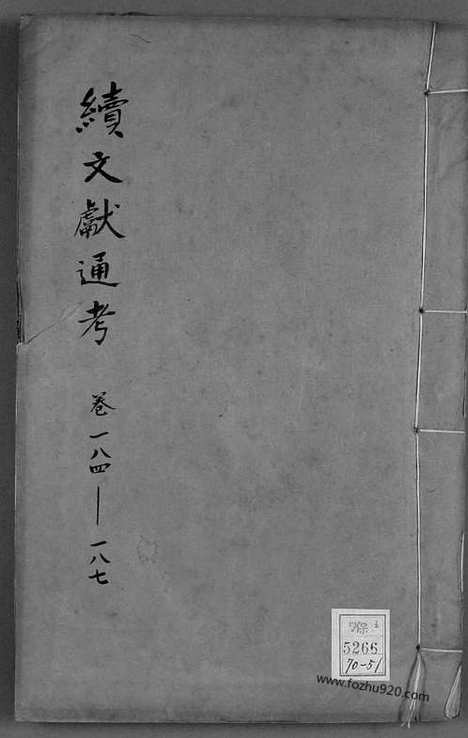 續文獻通考 卷一八四—一八七
5266
70-51
www.fozhu920.com